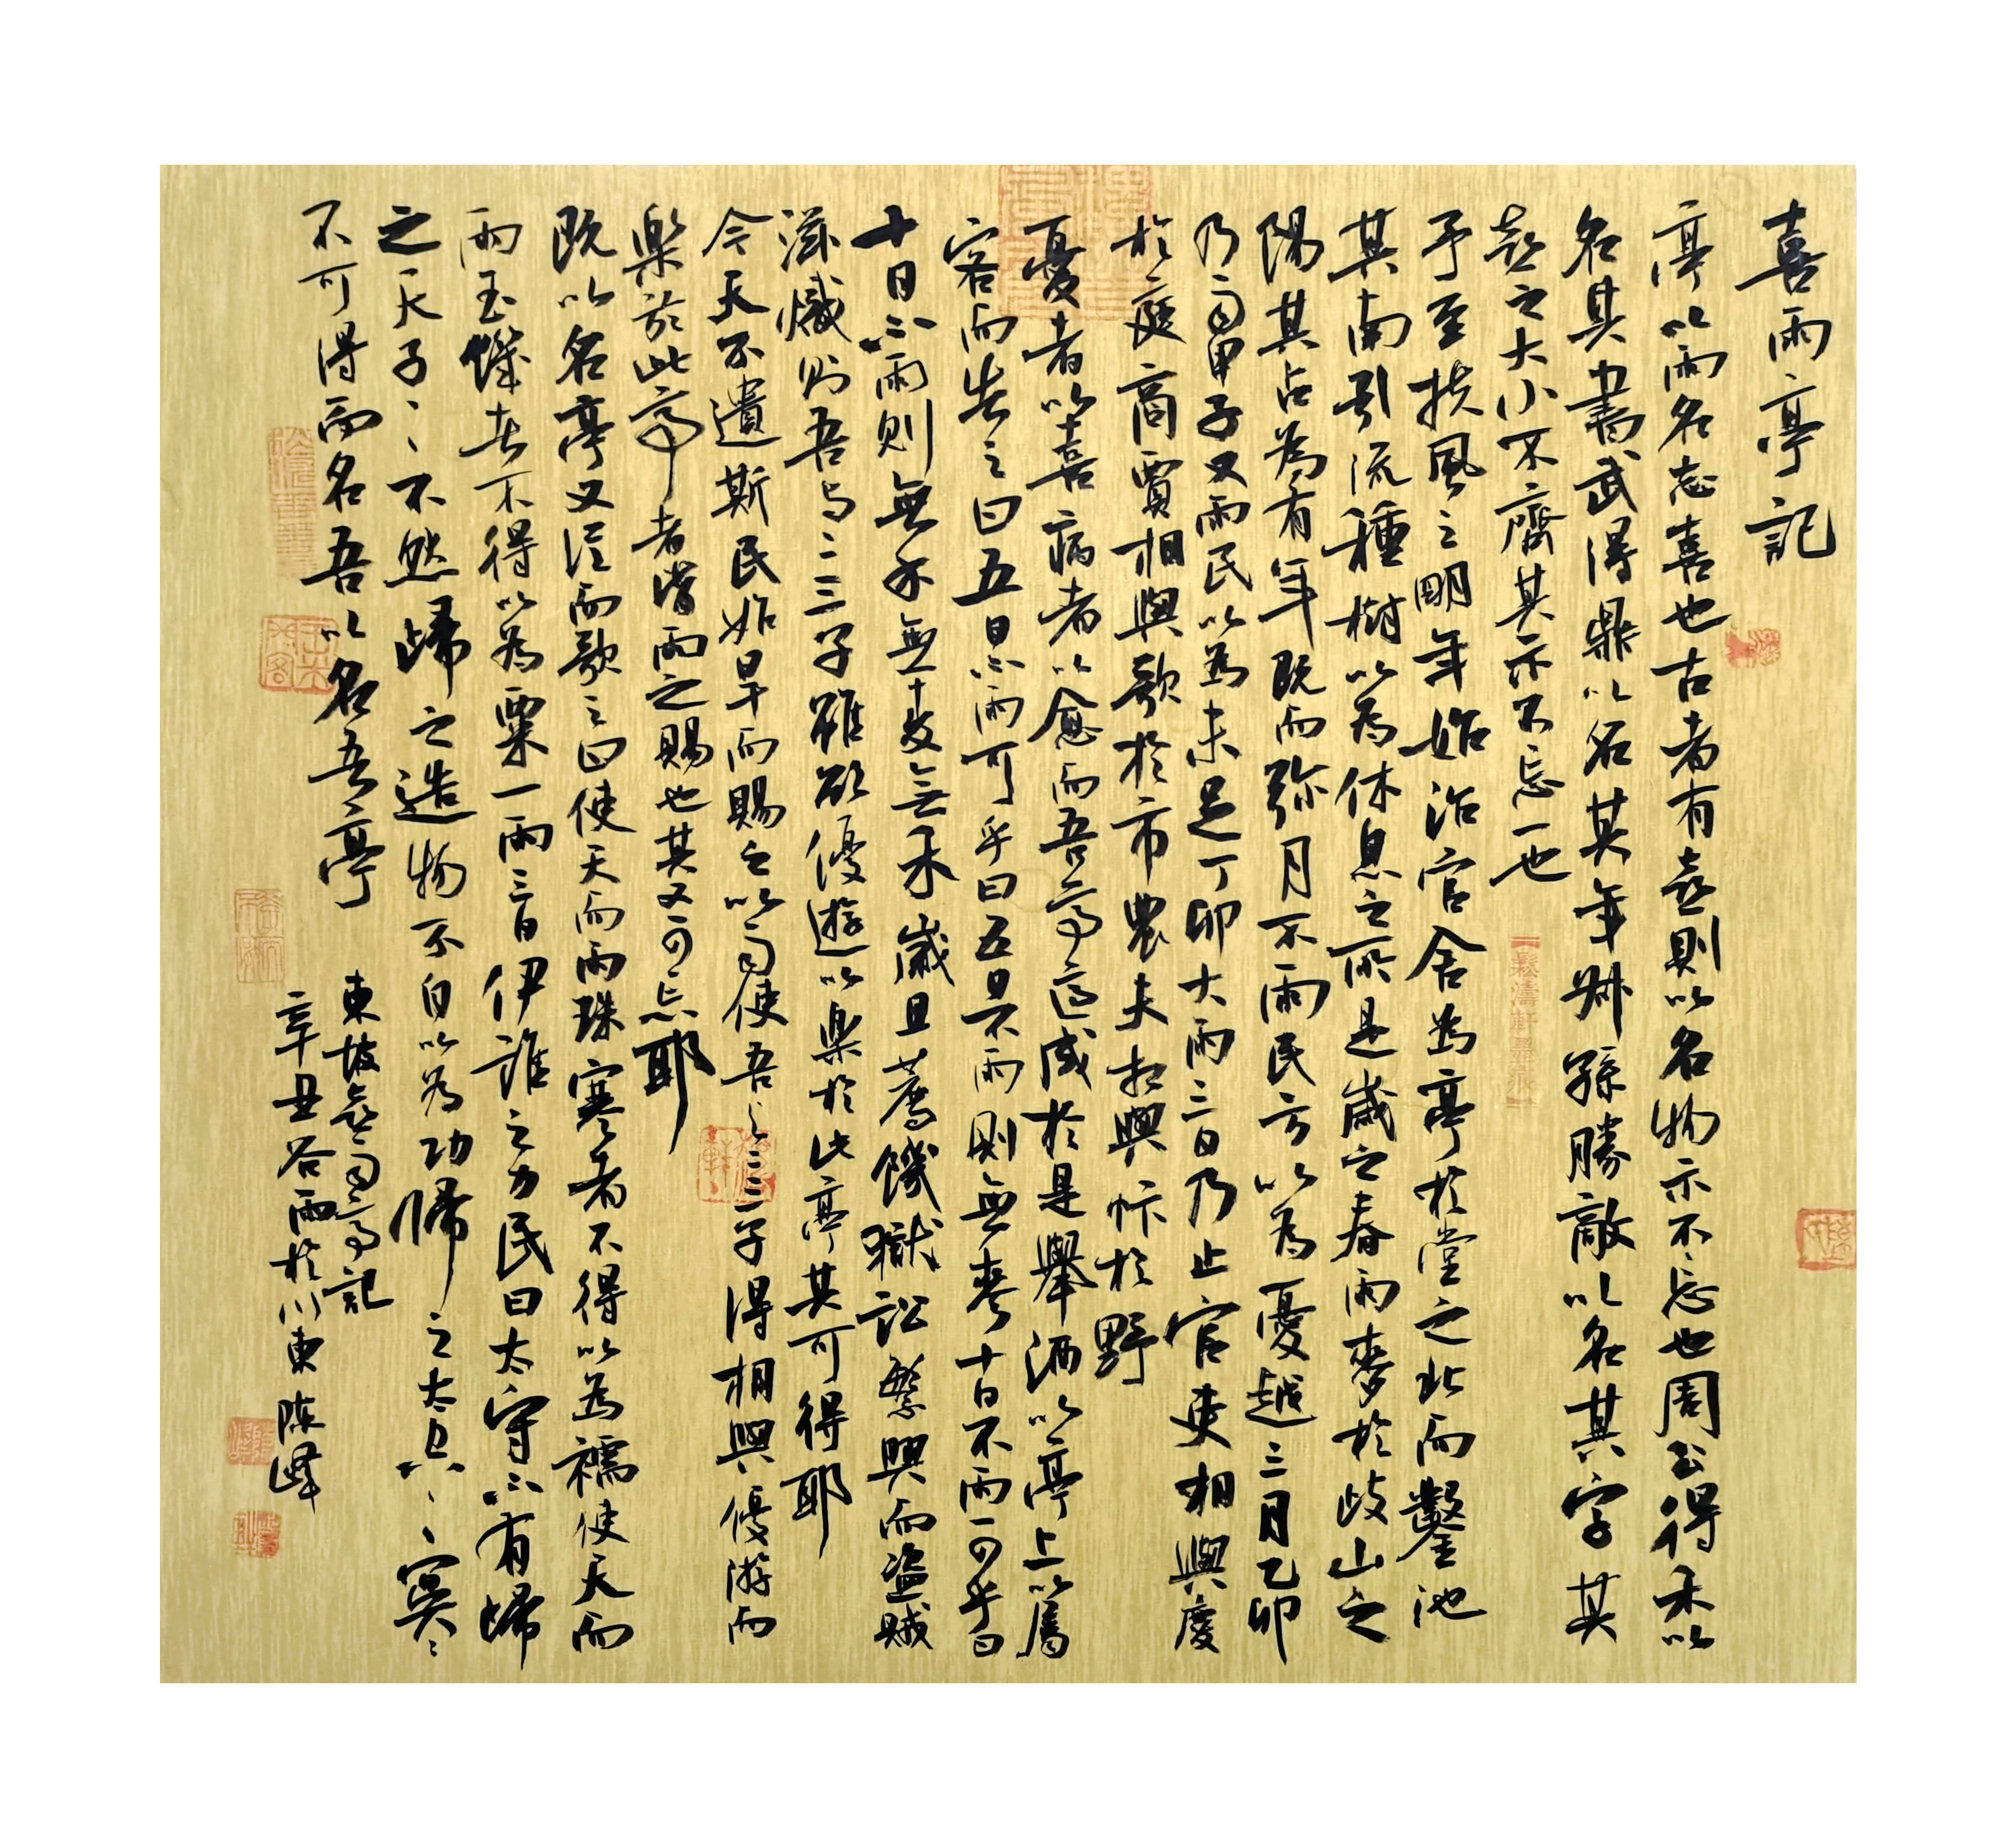 喜雨亭記
亭以雨名志喜也古者有喜則以名物示不忘也周公得禾以
名其書漢武得鼎以名其年叔孫勝敵以名其字其
喜之大小不齊其示不忘一也
予至扶風之明年始治官舍為亭於堂之北而鑿池
其南引流種樹以為休息之所是歲之春雨麥於岐山之
陽其占為有年既而彌月不雨民方以為憂越三月乙卯
乃雨甲子又雨民以為未足丁卯大雨三日乃止官吏相與慶
於庭商賈相與歌於市農夫相與忭於野
憂者以喜病者以愈而吾亭適成於是舉酒以亭上以屬
客而告之曰五日不雨可乎曰五日不雨則無麥十日不雨可乎曰
十日不雨則無禾無麥無禾歲且薦饑獄訟繁興而盜賊
滋熾則吾與二三子雖欲優遊以樂於此亭其可得耶
今天不遺斯民始旱而賜之以雨使吾與二三子得相與優游而
樂於此亭者皆雨之賜也其又可忘耶
既以名亭又從而歌之曰使天而雨珠寒者不得以為襦使天而
雨玉饑者不得以為粟一雨三日伊誰之力民曰太守不有歸
之天子〻不然歸之造物不自以為功歸之太空〻冥〻
不可得而名吾以名吾亭
東坡喜雨亭記
辛丑谷雨於川東陳峰
松濤軒墨緣